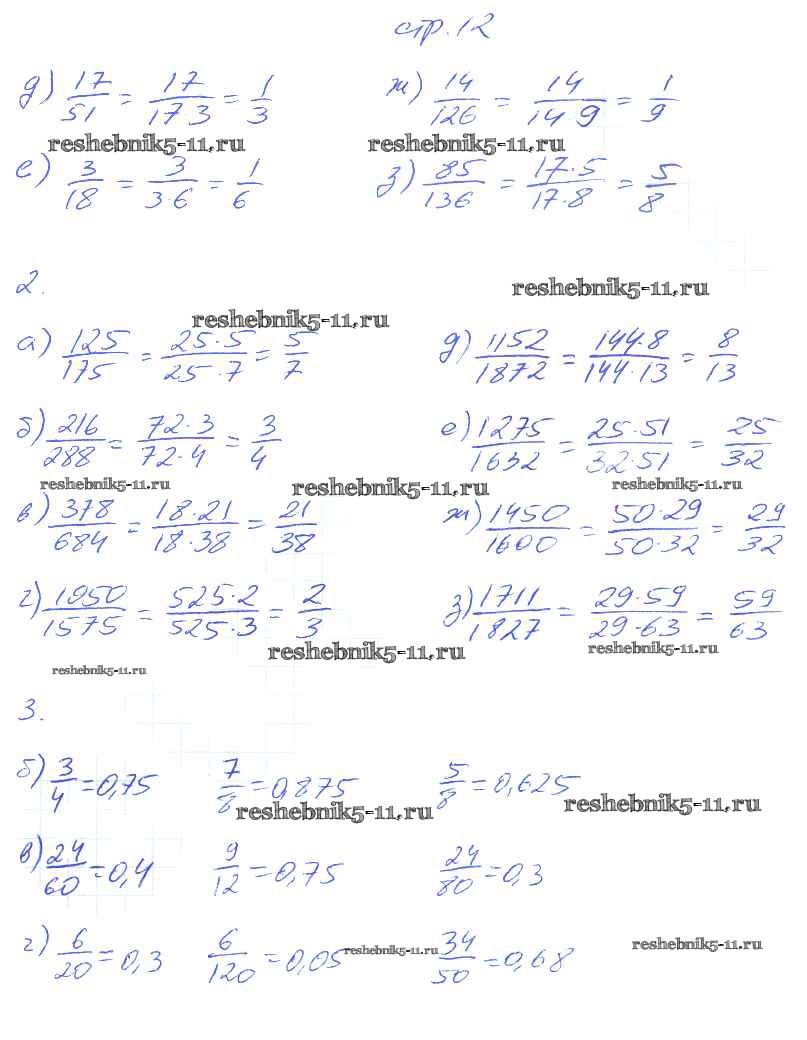 стр. 12
д) 17/51 = 17/17 3 = 1/3 ж) 14/126 = 14/14 9 = 1/9
reshebnik5-11.ru reshebnik5-11.ru
е) 3/18 = 3/3·6 = 1/6 з) 85/136 = 17·5/17·8 = 5/8
2. reshebnik5-11.ru
reshebnik5-11.ru
а) 125/175 = 25·5/25·7 = 5/7 д) 1152/1872 = 144·8/144·13 = 8/13
б) 216/288 = 72·3/72·4 = 3/4 е) 1275/1632 = 25·51/32·51 = 25/32
reshebnik5-11.ru reshebnik5-11.ru reshebnik5-11.ru
в) 378/684 = 18·21/18·38 = 21/38 ж) 1450/1600 = 50·29/50·32 = 29/32
г) 1050/1575 = 525·2/525·3 = 2/3 з) 1711/1827 = 29·59/29·63 = 59/63
reshebnik5-11.ru reshebnik5-11.ru
reshebnik5-11.ru
3.
б) 3/4 = 0,75 7/8 = 0,875 5/8 = 0,625
reshebnik5-11.ru reshebnik5-11.ru
в) 24/60 = 0,4 9/12 = 0,75 24/80 = 0,3
г) 6/20 = 0,3 6/120 = 0,05 34/50 = 0,68
reshebnik5-11.ru reshebnik5-11.ru